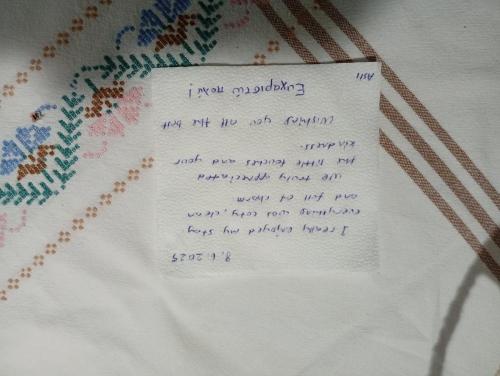 9.6.2025
I really enjoyed my stay
everything was cozy, clean
and full of charm
We truly appreciated
the little touches and your
kindness.
Wishing you all the best
Ευχαριστώ πολύ!
Aslı